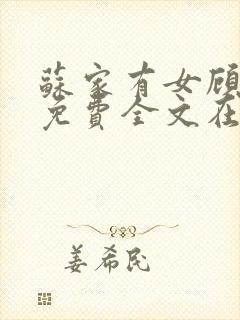 蘇家有女顧
免費全文在
姜希民